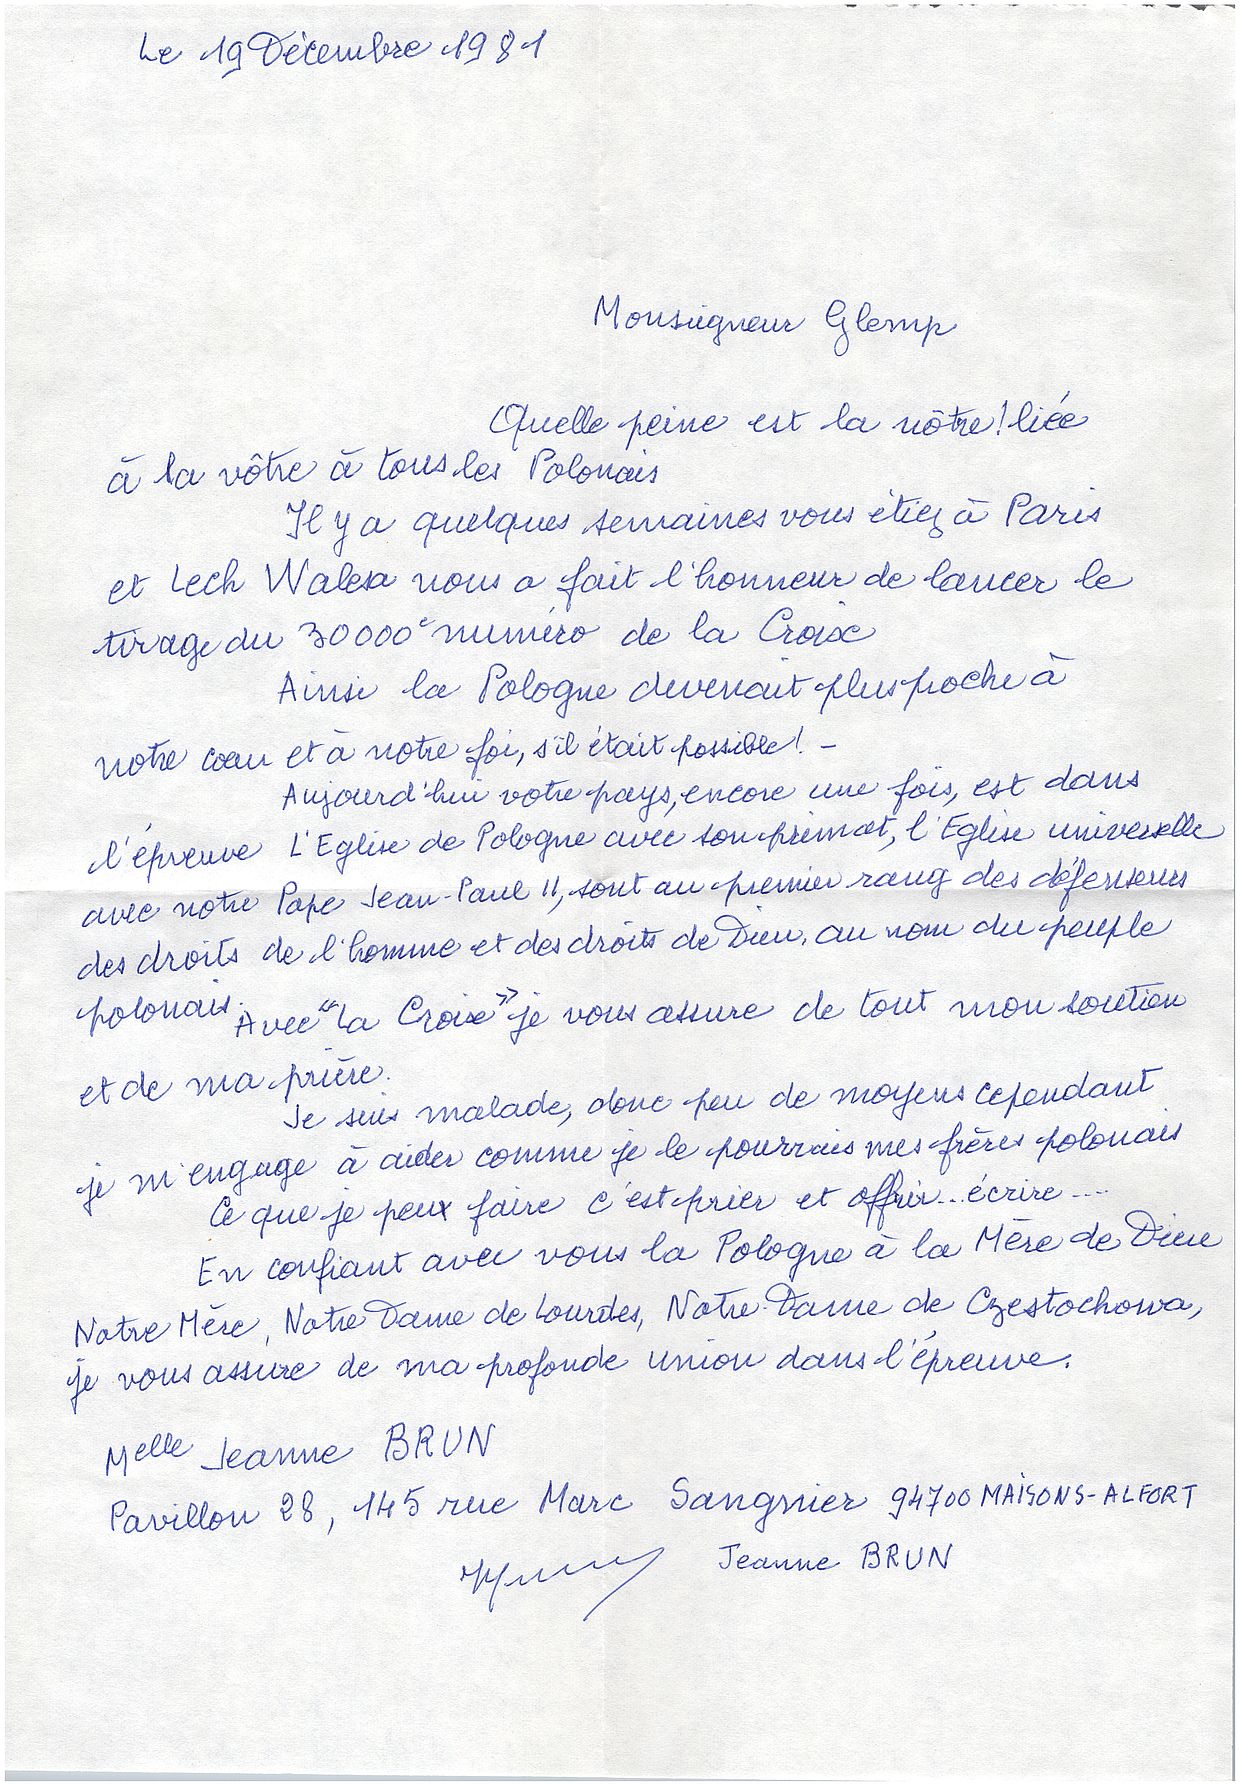 Le 19 Décembre 1981
Monseigneur Glemp
Quelle peine est la nôtre! liée
à la vôtre à tous les Polonais
Il y a quelques semaines vous étiez à Paris
et Lech Walesa nous a fait l'honneur de lancer le
tirage du 30000e numéro de la Croix
Ainsi la Pologne devenait plus proche à
notre cœur et à notre foi, s'il était possible! -
Aujourd'hui votre pays, encore une fois, est dans
l'épreuve L'Eglise de Pologne avec son primat, l'Eglise universelle
avec notre Pape Jean-Paul II, sont au premier rang des défenseurs
des droits de l'homme et des droits de Dieu, au nom du peuple
polonais.
Avec "La Croix" je vous assure de tout mon soutien
et de ma prière.
Je suis malade, donc peu de moyens cependant
je m'engage à aider comme je le pourrais mes frères polonais
Ce que je peux faire c'est prier et offrir... écrire....
En confiant avec vous la Pologne à la Mère de Dieu
Notre Mère, Notre Dame de Lourdes, Notre-Dame de Czestochowa,
je vous assure de ma profonde union dans l'épreuve.
Melle Jeanne BRUN
Pavillon 28, 145 rue Marc Sangnier 94700 MAISONS-ALFORT
Jeanne BRUN